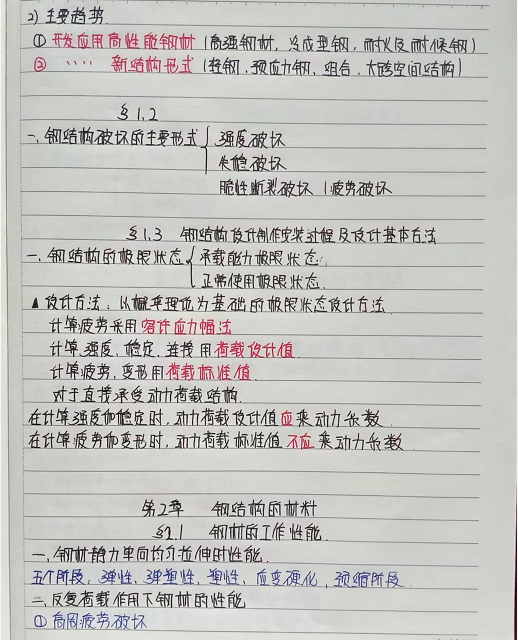 2) 主要趋势.
① 开发应用高性能钢材 (高强钢材, 冷成型钢, 耐火及耐候钢)
② ‥‥ 新结构形式 (轻钢, 预应力钢, 组合, 大跨空间结构)
§1.2
一、钢结构破坏的主要形式 { 强度破坏
失稳破坏
脆性断裂破坏 (疲劳破坏
§1.3 钢结构设计制作安装过程及设计基本方法
一、钢结构的极限状态 { 承载能力极限状态.
正常使用极限状态.
▲设计方法: 以概率理论为基础的极限状态设计方法
计算疲劳采用容许应力幅法
计算强度, 稳定, 连接用荷载设计值.
计算疲劳, 变形用荷载标准值.
对于直接承受动力荷载结构.
在计算强度和稳定时, 动力荷载设计值应乘动力系数.
在计算疲劳和变形时, 动力荷载标准值不应乘动力系数.
第2章 钢结构的材料
§2.1 钢材的工作性能.
一、钢材静力单向均匀拉伸时性能.
五个阶段: 弹性, 弹塑性, 塑性, 应变硬化, 颈缩阶段.
二、反复荷载作用下钢材的性能
① 高周疲劳破坏